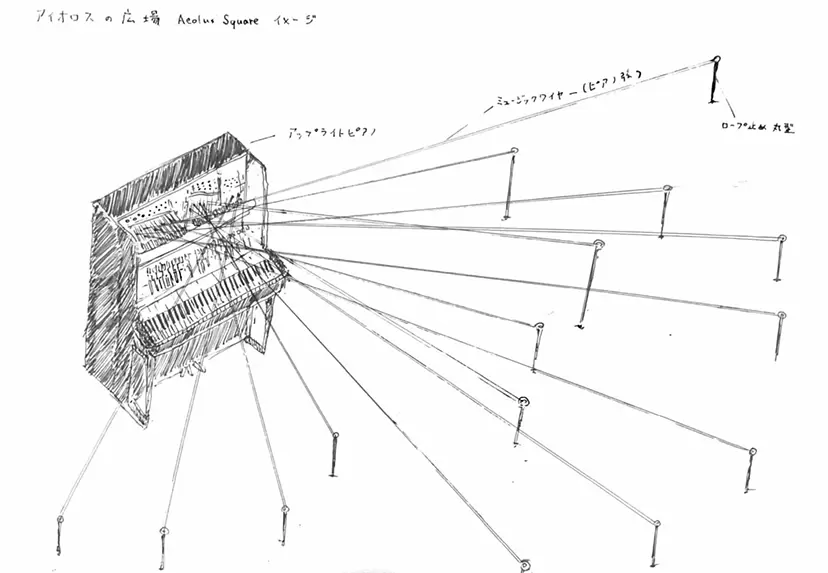 アイオロスの広場 Aeolus Square イメージ
ミュージックワイヤー(ピアノ弦)
ロープ止め 丸型
アップライトピアノ